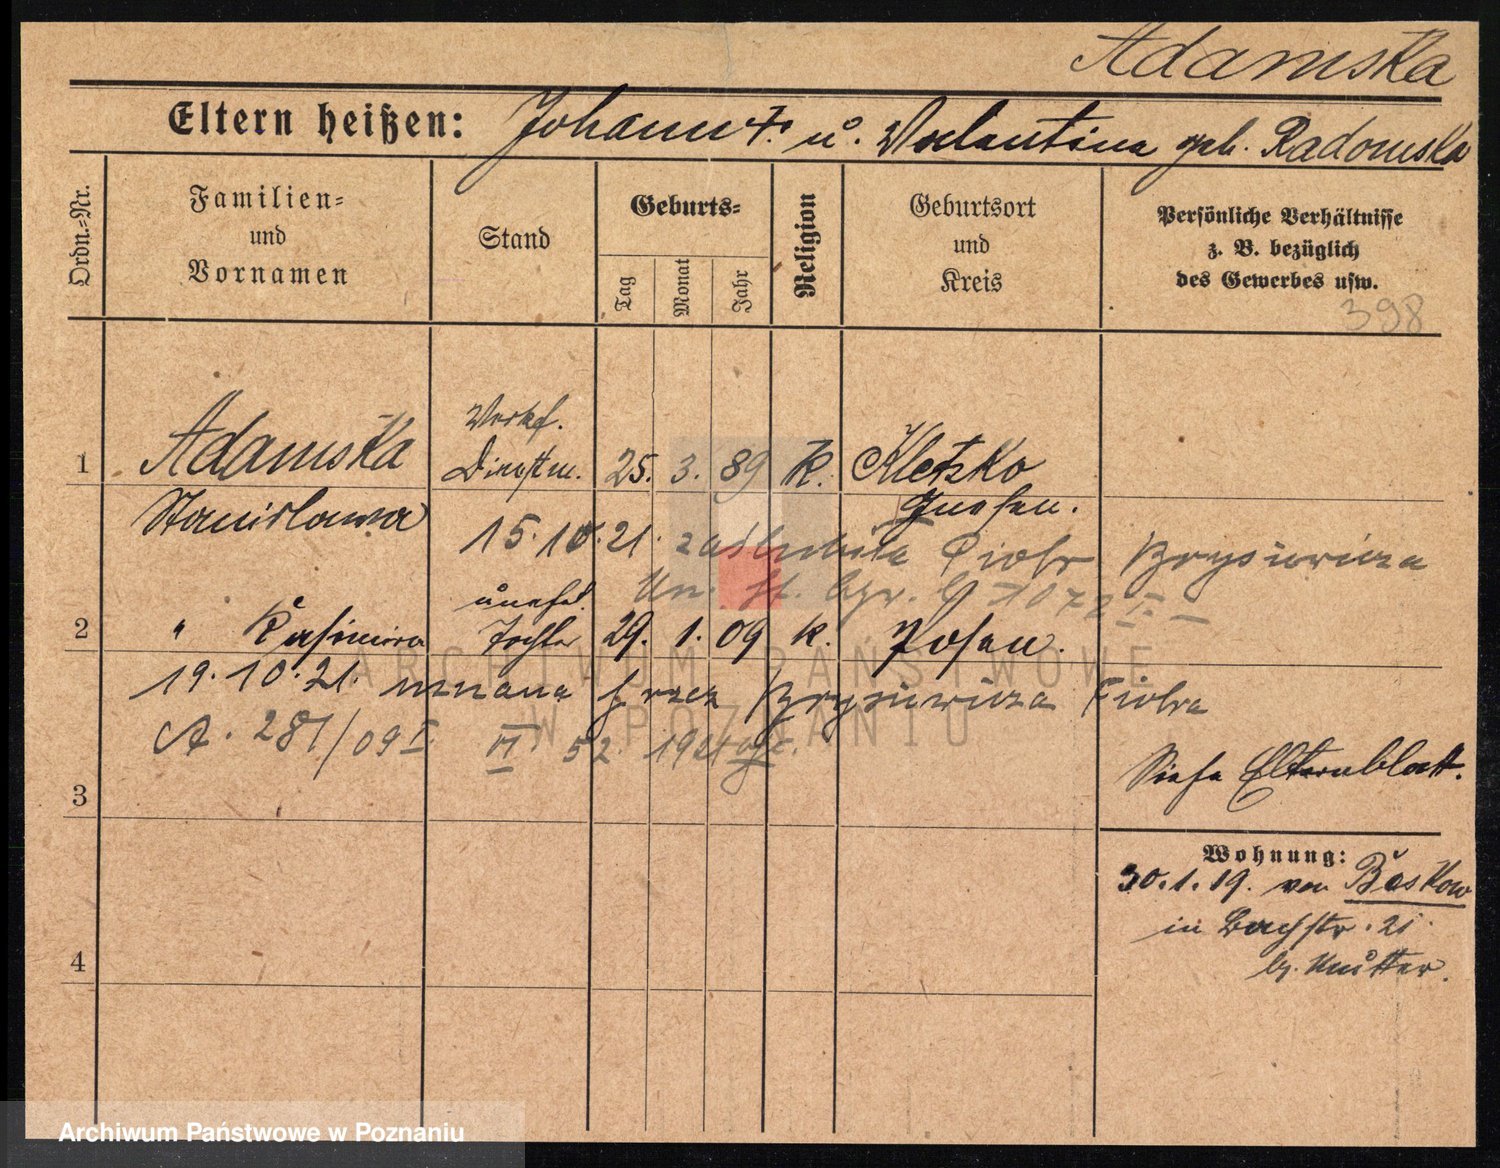 Adamska
Eltern heißen: Johann †. u. Valentina geb. Radomska
Ordn.=Nr.
Familien=
und
Vornamen
Stand
Geburts=
Tag
Monat
Jahr
Religion
Geburtsort
und
Kreis
Persönliche Verhältnisse
z. B. bezüglich
des Gewerbes usw.
398
Verkf.
1 Adamska Dienstm. 25. 3. 89 k. Kletzko
Stanislawa Gnesen.
15.10.21. zaślubiła Piotr Brysiewicza
unehel.
2 " Kasimira Tochter 29. 1. 09 k. Posen.
19.10.21. uznana przez Brysiewicza Piotra
A. 281/09 I VI 52
Siehe Elternblatt.
3
Wohnung:
30.1.19. von Baskow
in Bachstr. 21.
b. Mutter.
4
ARCHIWUM PAŃSTWOWE
W POZNANIU
Archiwum Państwowe w Poznaniu